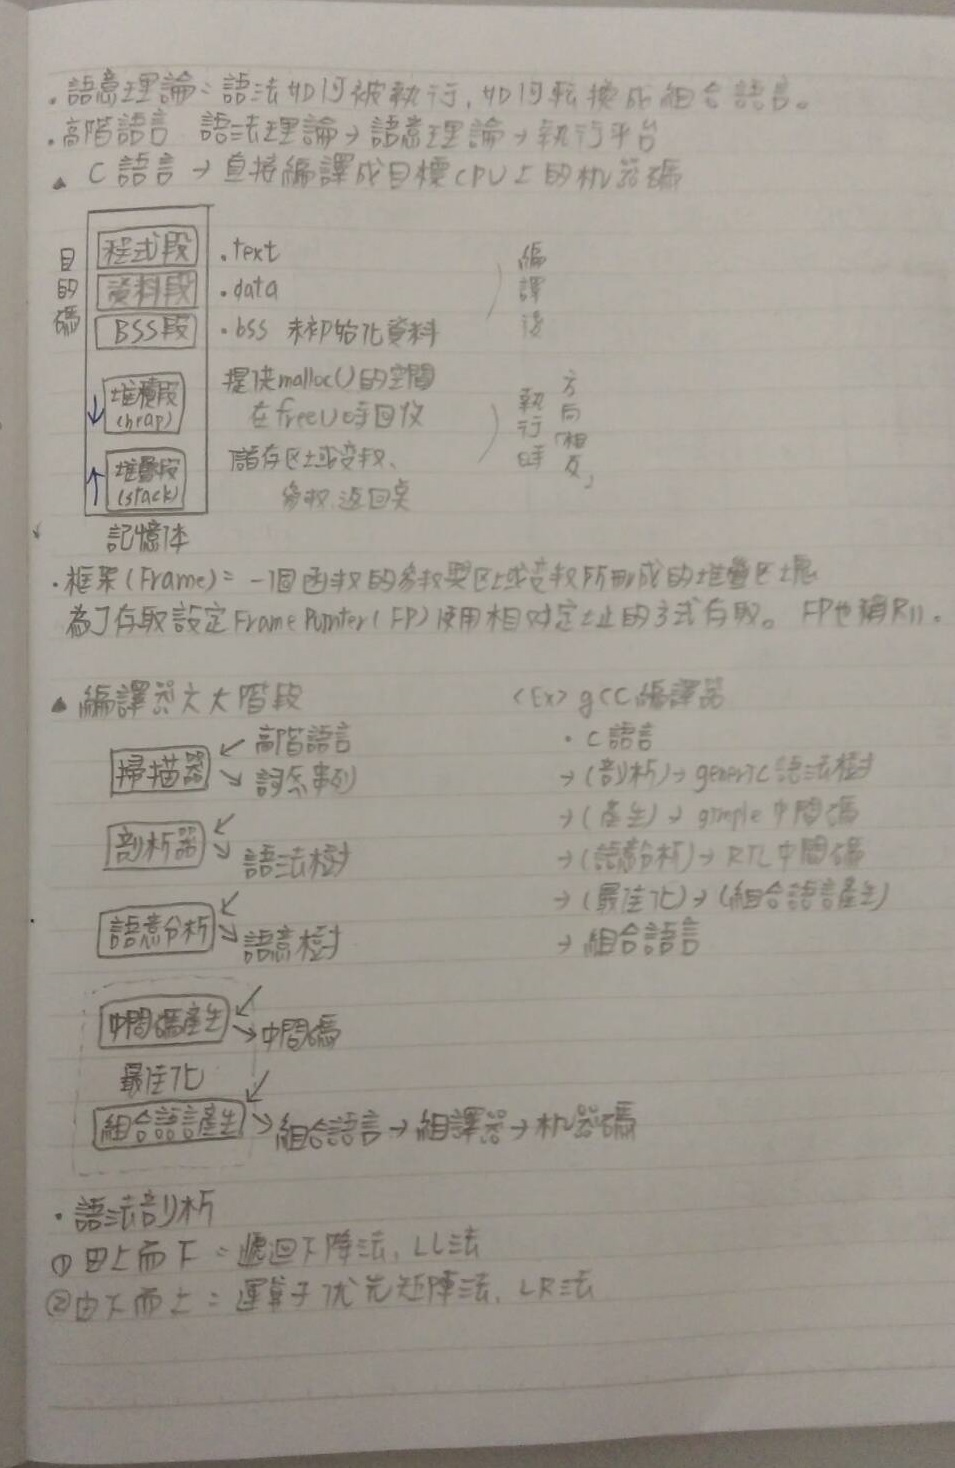 ・語意理論：語法如何被執行，如何転換成組合語言。
・高階語言 語法理論→語意理論→執行平台
▲ C語言→直接編譯成目標CPU上的机器碼
目的碼
程式段 ・text
資料段 ・data
BSS段 ・bss 未初始化資料
編譯後
堆積段(heap) 提供malloc()的空間
在free()時回收
堆疊段(stack) 儲存区域変数、
参数、返回
執行時
方向「相反」
記憶体
・框架(Frame)：一個函数的参数與区域変数所形成的堆疊区塊
為了存取設定Frame Pointer(FP)使用相対定址的方式存取。 FP也稱R11。
▲ 編譯器六大階段
掃描器 ↙ 高階語言
↘ 詞彙串列
剖析器 ↙
↘ 語法樹
語意分析 ↙
↘ 語意樹
中間碼產生 ↙
↘ 中間碼
最佳化
組合語言產生 ↙
↘ 組合語言→組譯器→机器碼
<Ex> gcc編譯器
・C語言
→(剖析)→generic語法樹
→(產生)→gimple中間碼
→(語意分析)→RTL中間碼
→(最佳化)→(組合語言產生)
→組合語言
・語法剖析
①由上而下：遞迴下降法、LL法
②由下而上：運算子优先矩陣法、LR法